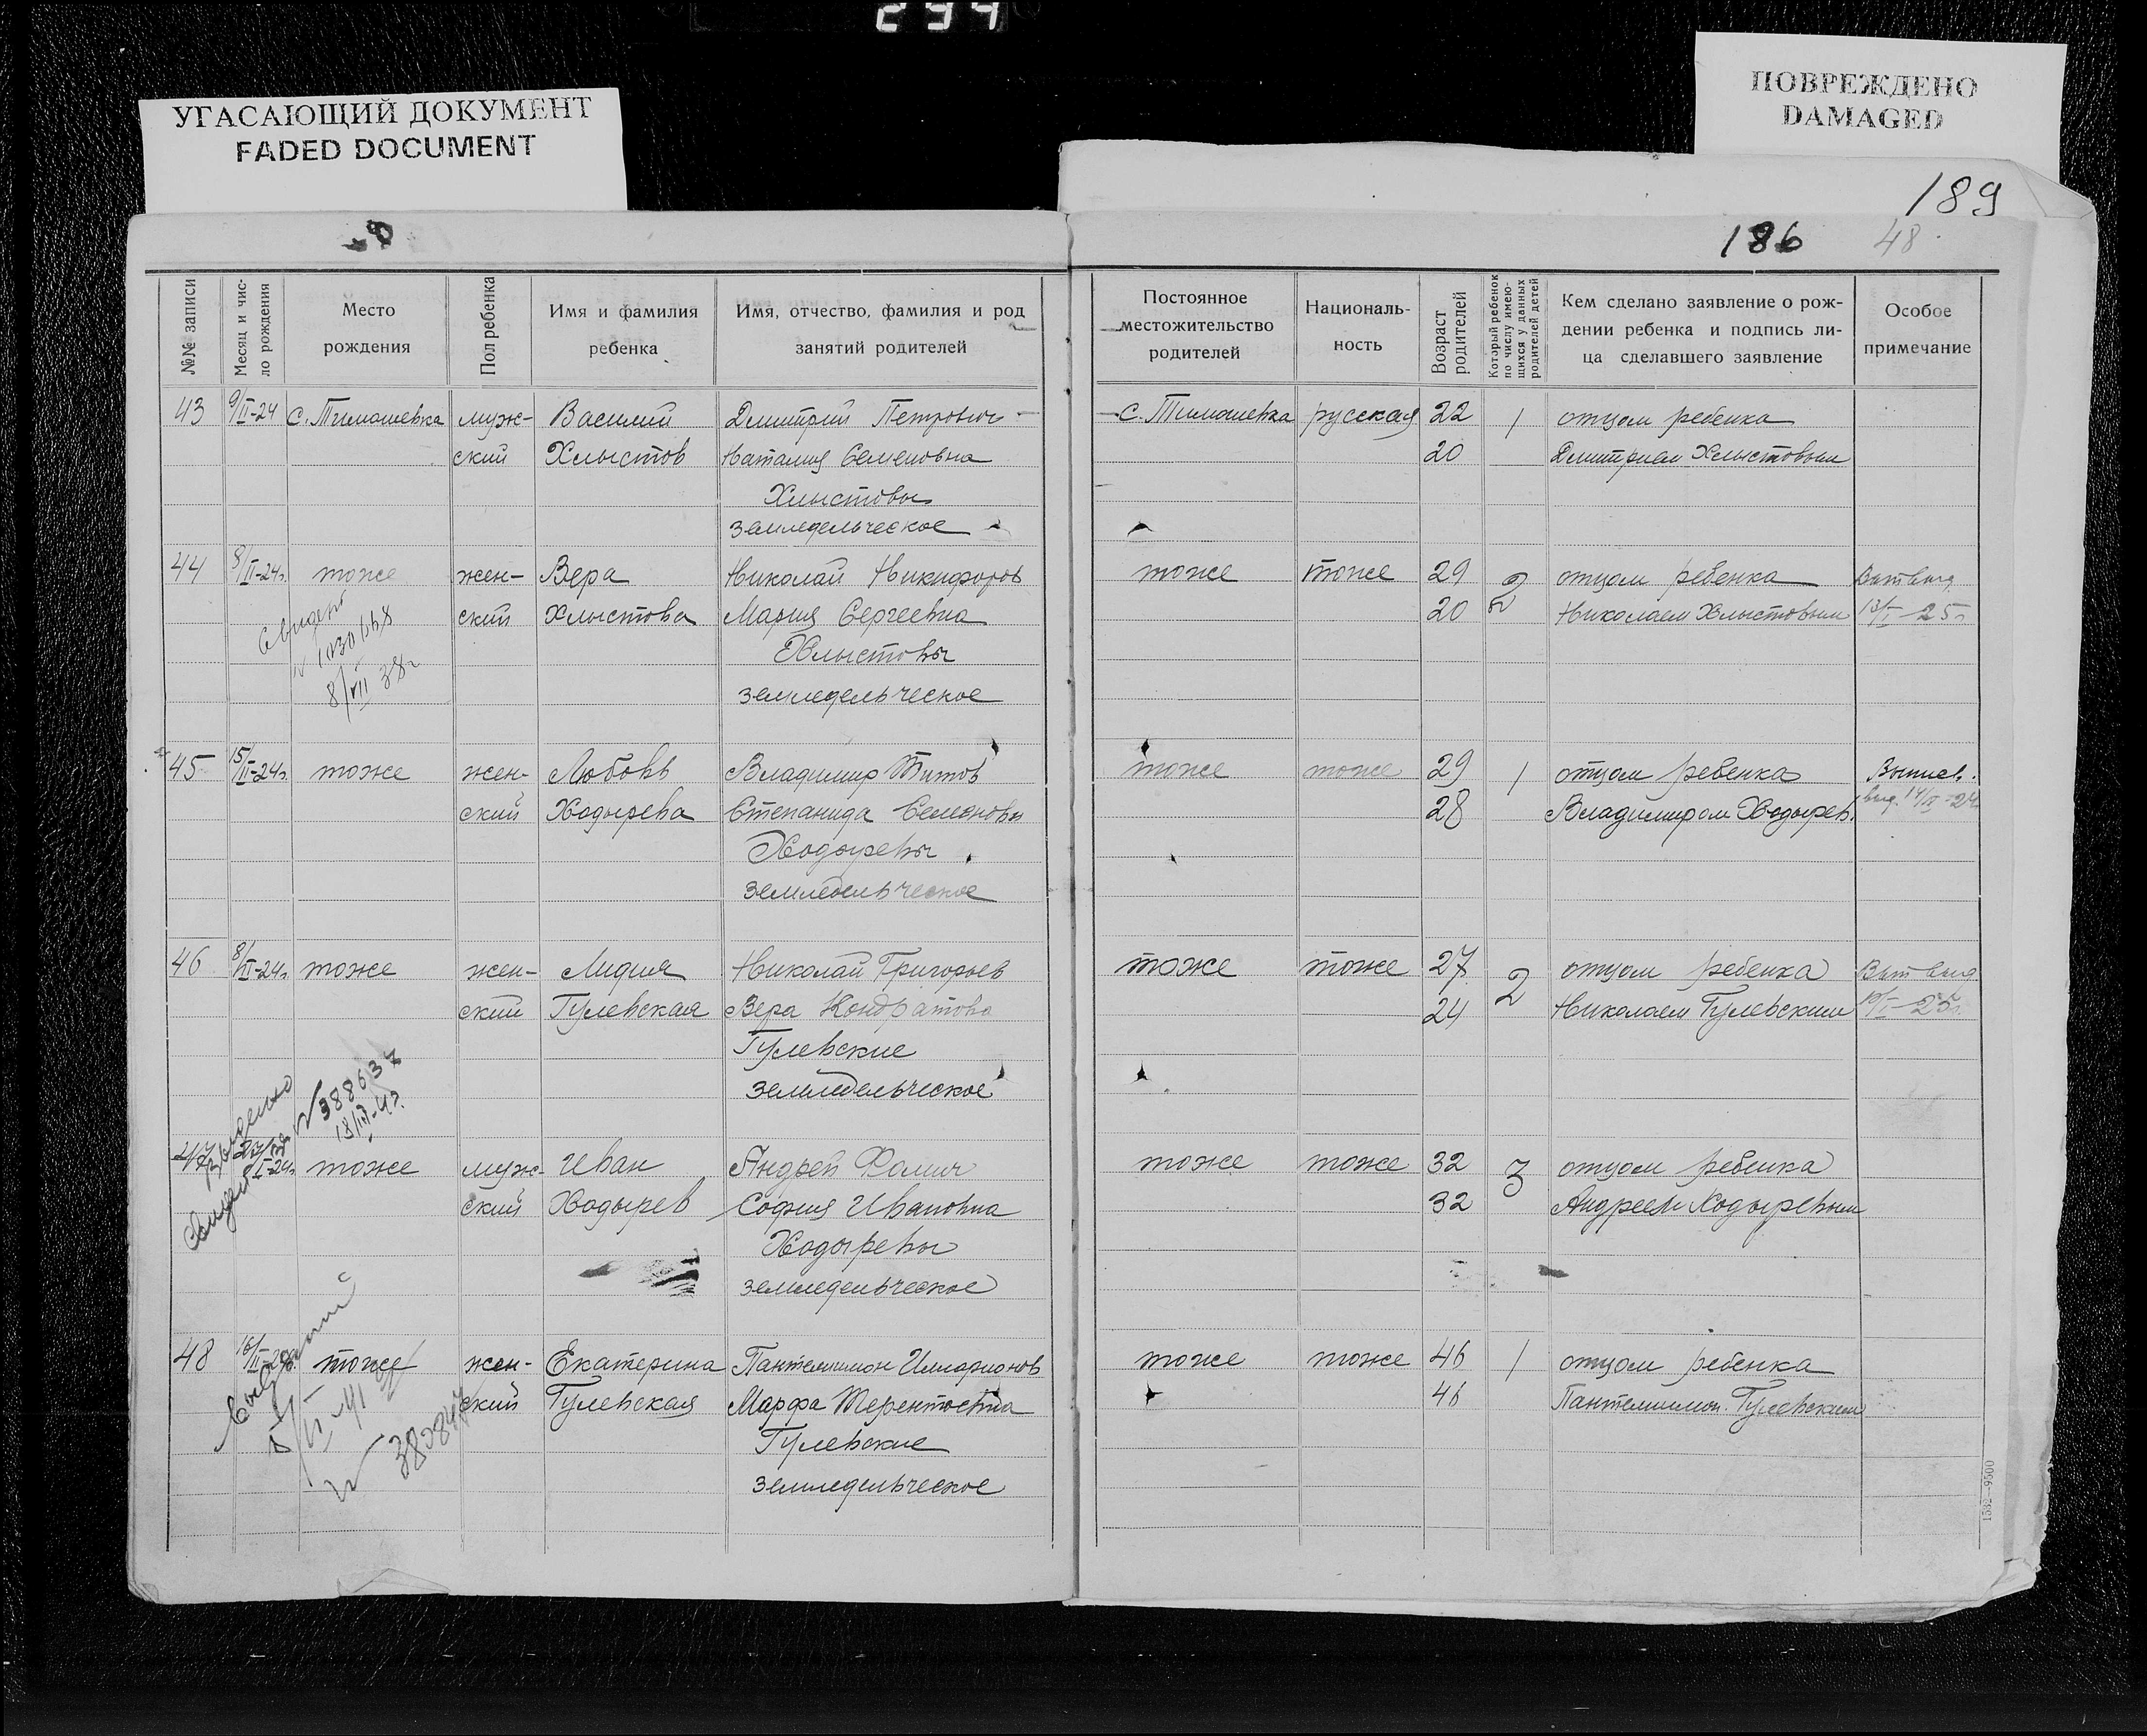 294
УГАСАЮЩИЙ ДОКУМЕНТ
FADED DOCUMENT
ПОВРЕЖДЕНО
DAMAGED
189
186 48
№№ записи
Месяц и чис-
ло рождения
Место
рождения
Пол ребенка
Имя и фамилия
ребенка
Имя, отчество, фамилия и род
занятий родителей
Постоянное
местожительство
родителей
Националь-
ность
Возраст
родителей
Который ребенок
по числу имею-
щихся у данных
родителей детей
Кем сделано заявление о рож-
дении ребенка и подпись ли-
ца сделавшего заявление
Особое
примечание
43 9/II-24 с. Тимашевка муж- Василий Дмитрий Петрович с. Тимашевка русская 22 1 отцом ребенка
ский Хлыстов Наталия Семеновна 20 Дмитрием Хлыстовым
Хлыстовы
земледельческое
44 8/II-24г. тоже жен- Вера Николай Никифоров тоже тоже 29 2 отцом ребенка
ский Хлыстова Мария Сергеевна 20 Николаем Хлыстовым 13/I-25г.
Хлыстовы
земледельческое
8/VII 38г
45 15/II-24г. тоже жен- Любовь Владимир Титов тоже тоже 29 1 отцом ребенка
ский Ходырева Степанида Семеновы 28 Владимиром Ходырев.
Ходыревы
земледельческое
46 8/II-24г. тоже жен- Лидия Николай Григорьев тоже тоже 27 2 отцом ребенка
ский Гулевская Вера Кондратова 24 Николаем Гулевским
Гулевские
земледельческое
№ 388637
47 тоже муж- Иван Андрей Фомич тоже тоже 32 3 отцом ребенка
ский Ходырев София Ивановна 32 Андреем Ходыревым
Ходыревы
земледельческое
48 16/II-24г. тоже жен- Екатерина Пантелимон Илларионов тоже тоже 46 1 отцом ребенка
ский Гулевская Марфа Терентьевна 46 Пантелимон. Гулевским
Гулевские
земледельческое
1532—9500